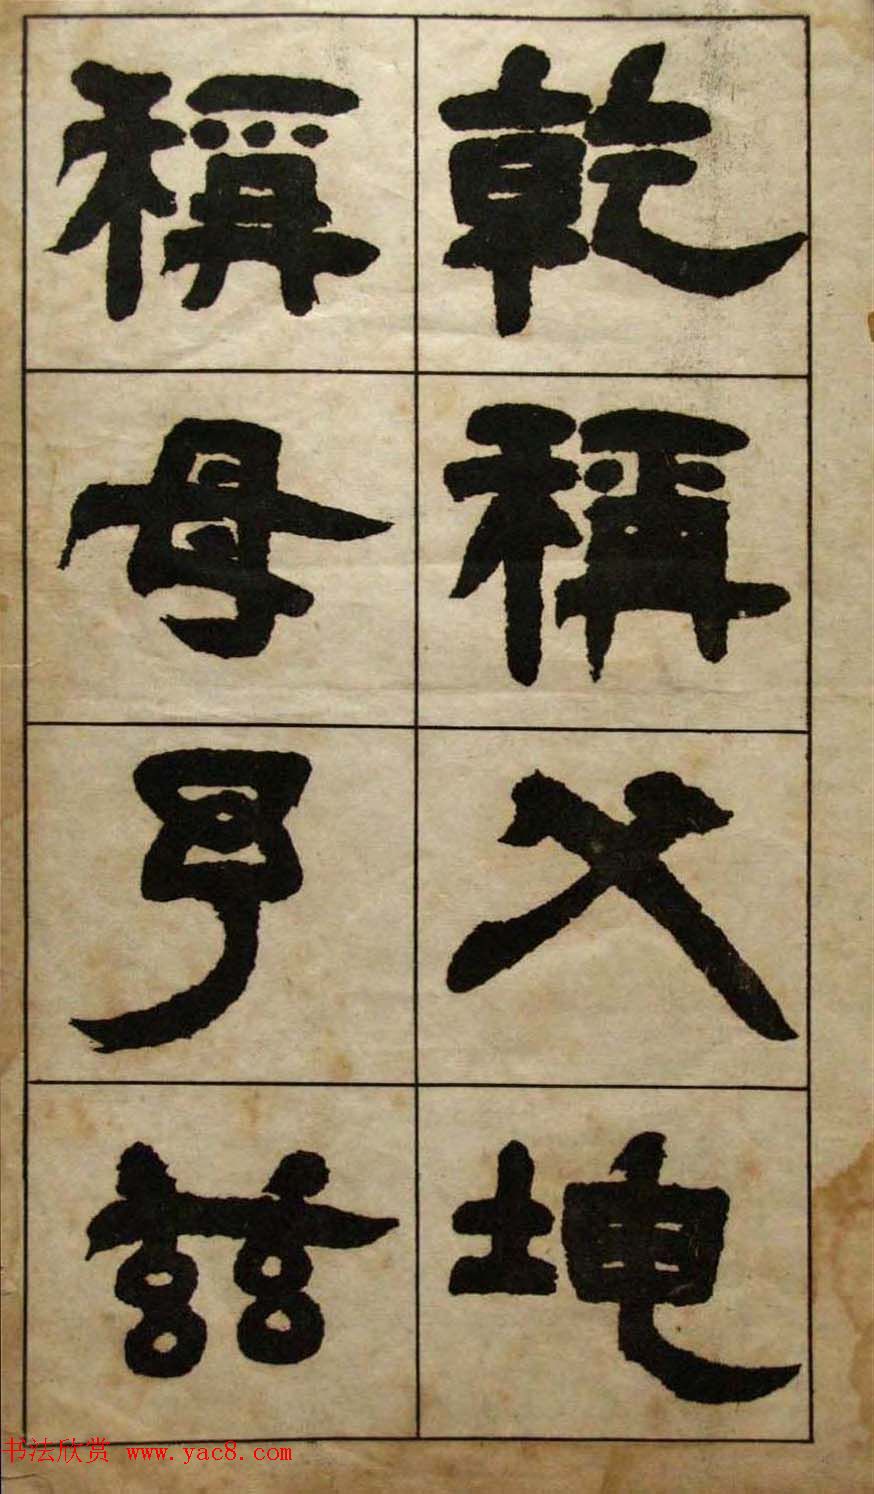 乾稱父坤
稱母予茲
书法欣赏 www.yac8.com